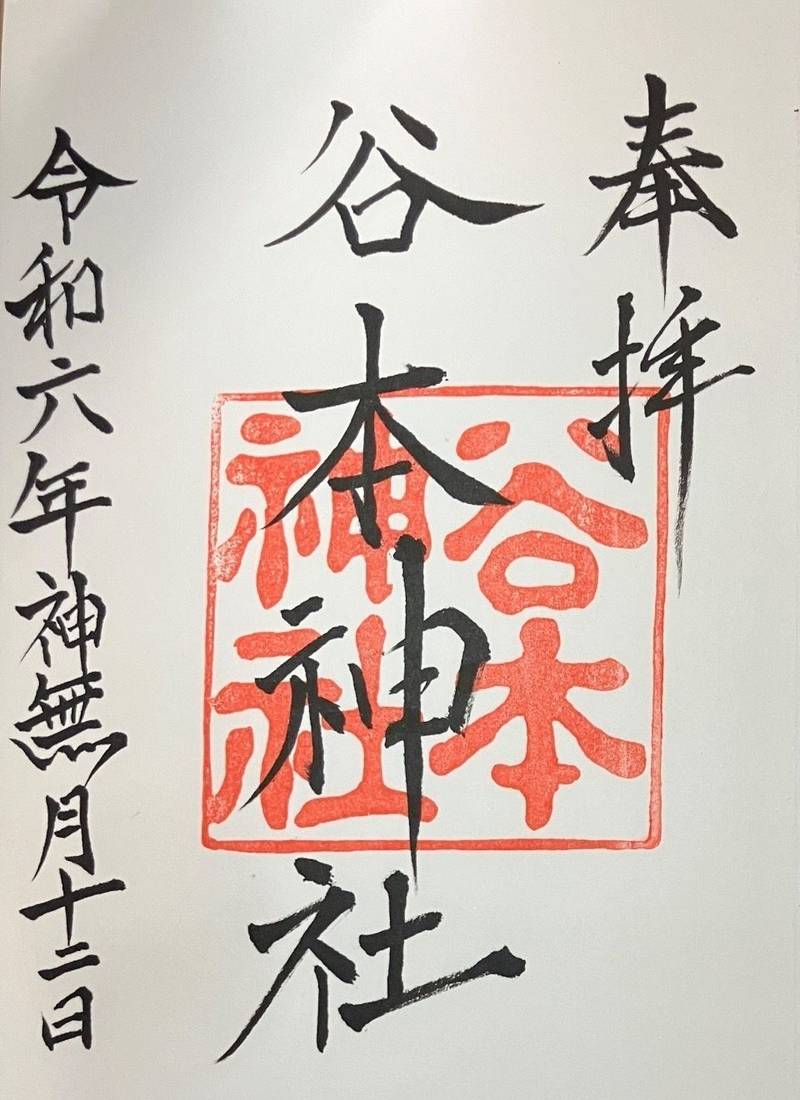 奉拝
谷本神社
谷本
神社
令和六年神無月十二日